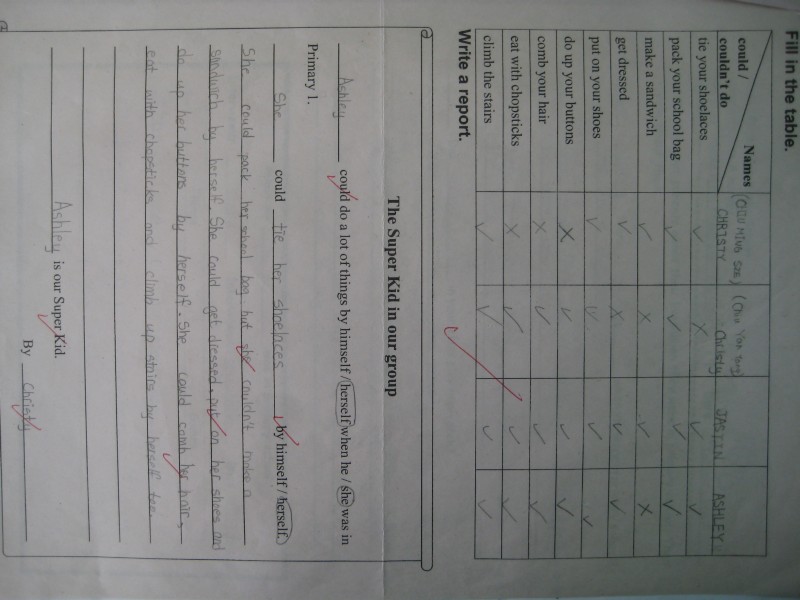 Fill in the table.
Names
could /
couldn't do
CHRISTY
Christy
JASTIN
ASHLEY
tie your shoelaces
pack your school bag
make a sandwich
get dressed
put on your shoes
do up your buttons
comb your hair
eat with chopsticks
climb the stairs
Write a report.
The Super Kid in our group
Ashley could do a lot of things by himself / herself when he / she was in
Primary 1.
She could tie her shoelaces by himself / herself.
She could pack her school bag but she couldn't make a
sandwich by herself. She could get dressed, put on her shoes and
do up her buttons by herself. She could comb her hair,
eat with chopsticks and climb up stairs by herself too.
Ashley is our Super Kid.
By Christy